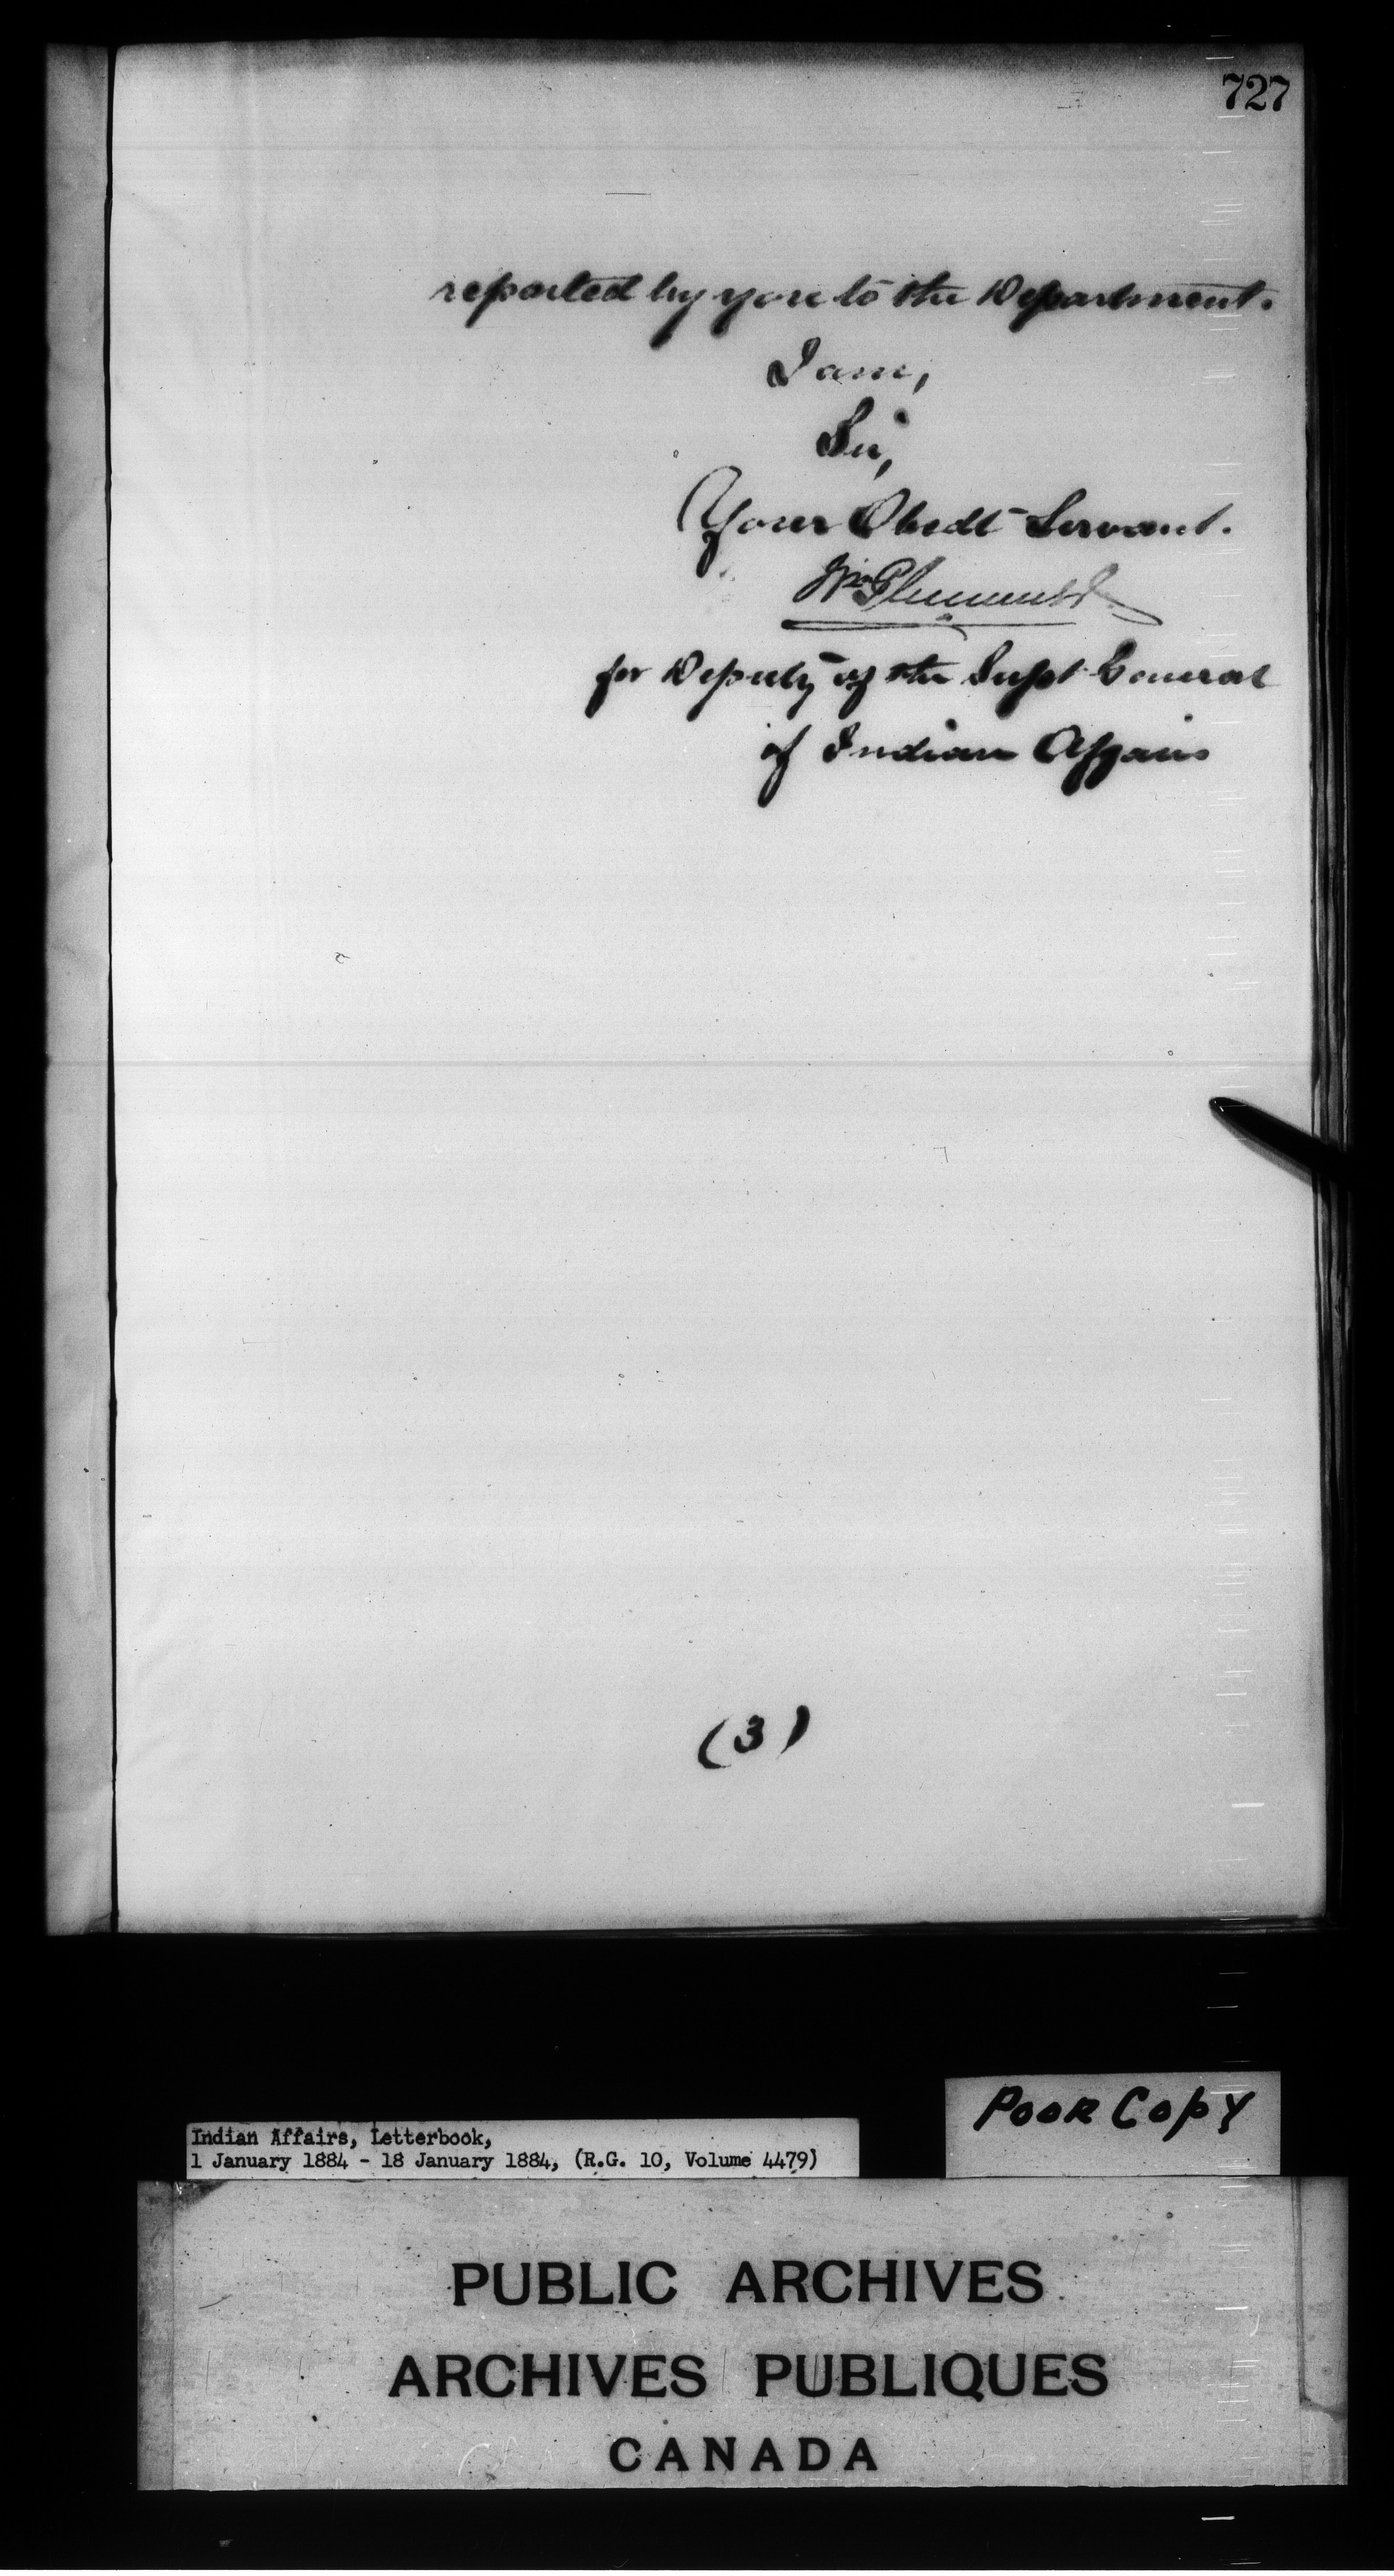 727
reported by you to the Department.
I am,
Sir,
Your Obedt Servant.
Wm Plummer
for Deputy of the Supt General
of Indian Affairs
(3)
Poor Copy
Indian Affairs, Letterbook,
1 January 1884 - 18 January 1884, (R.G. 10, Volume 4479)
PUBLIC ARCHIVES
ARCHIVES PUBLIQUES
CANADA